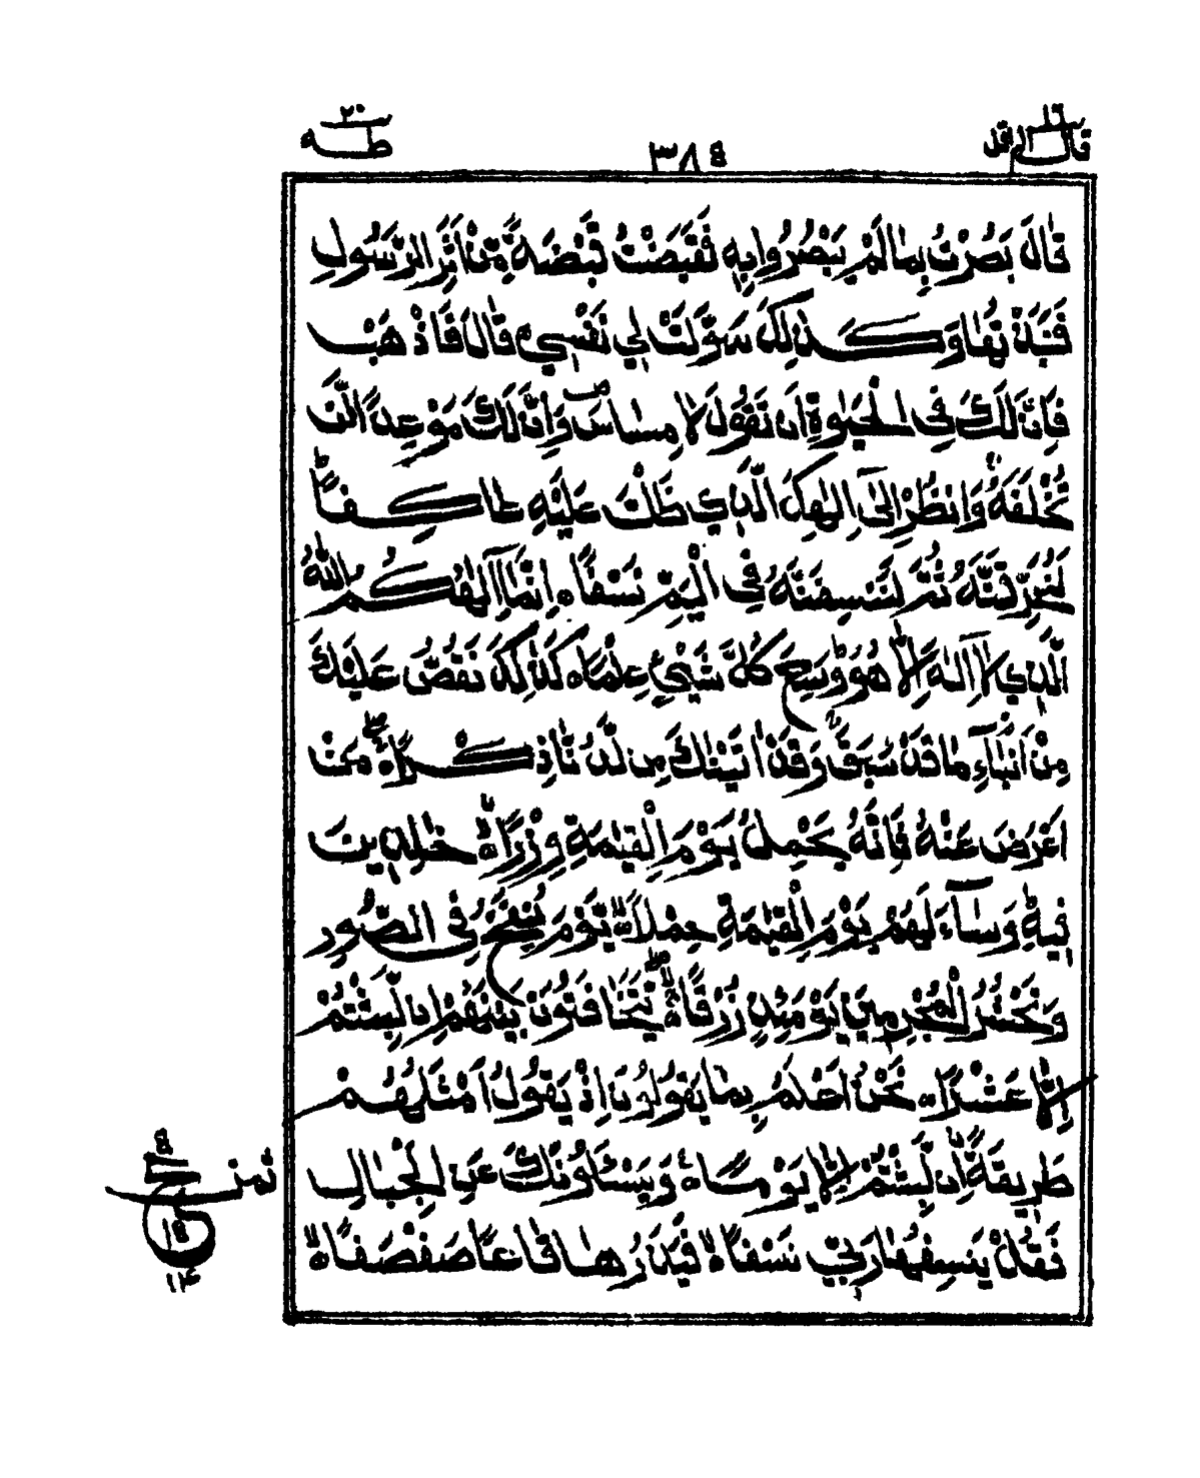 قال الم ١٦
٣٨٤
طه ٢٠
قَالَ بَصُرْتُ بِمَا لَمْ يَبْصُرُوا بِهٖ فَقَبَضْتُ قَبْضَةً مِّنْ اَثَرِ الرَّسُوْلِ
فَنَبَذْتُهَا وَكَذٰلِكَ سَوَّلَتْ لِيْ نَفْسِيْ قَالَ فَاذْهَبْ
فَاِنَّ لَكَ فِي الْحَيٰوةِ اَنْ تَقُوْلَ لَا مِسَاسَ ص وَاِنَّ لَكَ مَوْعِدًا لَّنْ
تُخْلَفَهٗ وَانْظُرْ اِلٰٓى اِلٰهِكَ الَّذِيْ ظَلْتَ عَلَيْهِ عَاكِفًا ط
لَنُحَرِّقَنَّهٗ ثُمَّ لَنَنْسِفَنَّهٗ فِي الْيَمِّ نَسْفًا ه اِنَّمَآ اِلٰهُكُمُ اللّٰهُ
الَّذِيْ لَآ اِلٰهَ اِلَّا هُوَ ط وَسِعَ كُلَّ شَيْءٍ عِلْمًا ه كَذٰلِكَ نَقُصُّ عَلَيْكَ
مِنْ اَنْۢبَآءِ مَا قَدْ سَبَقَ وَقَدْ اٰتَيْنٰكَ مِنْ لَّدُنَّا ذِكْرًا ه مَنْ
اَعْرَضَ عَنْهُ فَاِنَّهٗ يَحْمِلُ يَوْمَ الْقِيٰمَةِ وِزْرًا ه خٰلِدِيْنَ
فِيْهِ ط وَسَآءَ لَهُمْ يَوْمَ الْقِيٰمَةِ حِمْلًا ه يَّوْمَ يُنْفَخُ فِي الصُّوْرِ
وَنَحْشُرُ الْمُجْرِمِيْنَ يَوْمَئِذٍ زُرْقًا ه يَّتَخَافَتُوْنَ بَيْنَهُمْ اِنْ لَّبِثْتُمْ
اِلَّا عَشْرًا ه نَحْنُ اَعْلَمُ بِمَا يَقُوْلُوْنَ اِذْ يَقُوْلُ اَمْثَلُهُمْ
طَرِيْقَةً اِنْ لَّبِثْتُمْ اِلَّا يَوْمًا ه وَيَسْئَلُوْنَكَ عَنِ الْجِبَالِ
فَقُلْ يَنْسِفُهَا رَبِّيْ نَسْفًا ه فَيَذَرُهَا قَاعًا صَفْصَفًا ه
ثمن
ع
١٤